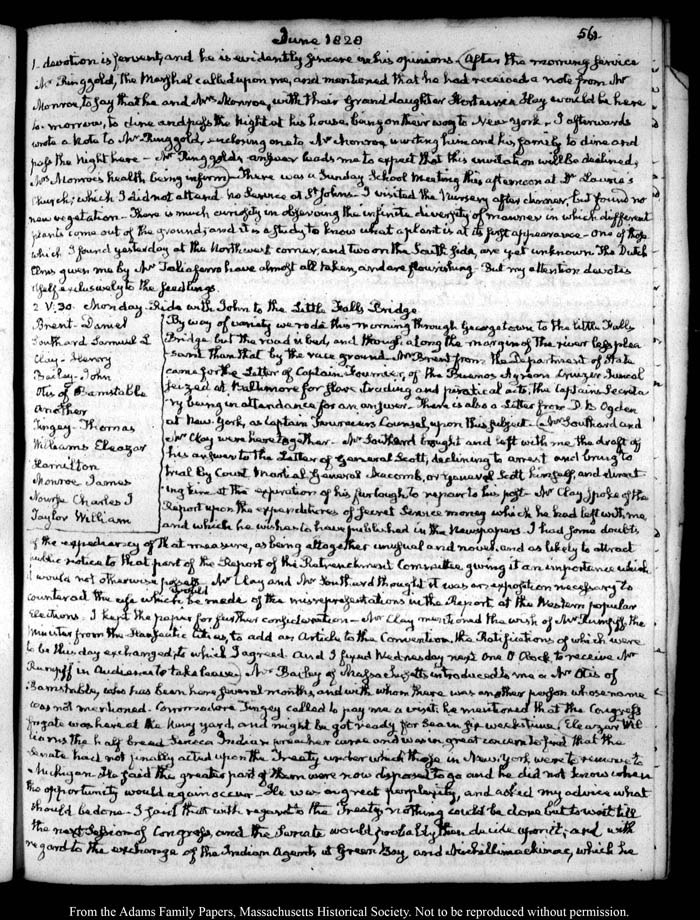 June 1828
561
1. devotion is fervent, and he is evidently sincere in his opinions. After the morning service
Mr Ringgold, the Marshal called upon me, and mentioned that he had received a note from Mr
Monroe, to say that he and Mrs Monroe, with their Grand daughter Hortensia Hay would be here
to-morrow, to dine and pass the Night at his house, being on their way to New-York. I afterwards
wrote a Note to Mr Ringgold, enclosing one to Mr Monroe inviting him and his family to dine and
pass the Night here — Mr Ringgold's answer leads me to expect that this invitation will be declined;
Mrs Monroe's health, being infirm — There was a Sunday School Meeting this afternoon at Dr Laurie's
Church; which I did not attend. No Service at St Johns. I visited the Nursery after dinner, but found no
new vegetation — There is much curiosity in observing the infinite diversity of manner in which different
plants come out of the ground; and it is a study to know what a plant is at its first appearance — One of those
which I found yesterday at the Northwest corner, and two on the South side, are yet unknown. The Dutch
Elms given me by Mr Taliaferro have almost all taken, and are flourishing. But my attention devotes
itself exclusively to the seedlings.
2. V:30. Monday. Ride with John to the Little Falls Bridge
Brent. Daniel
Southard Samuel L
Clay. Henry
Bailey. John
Otis of Barnstable
Another
Tingey. Thomas
Williams Eleazar
Hamilton
Monroe James
Nourse Charles J
Taylor William
By way of variety we rode this morning through Georgetown to the little Falls
Bridge but the road is bad, and though along the margin of the river less plea
sant than that by the race ground. Mr Brent from the Department of State
came for the Letter of Captain Fournier, of the Buenos Ayrean Cruizer
seized at Baltimore for slave trading and piratical acts; the Captain's Secreta
ry being in attendance for an answer. There is also a Letter from D. B. Ogden
at New-York, as Captain Fournier's Counsel, upon this subject. Mr Southard and
Mr Clay were here together. Mr Southard brought and left with me the draft of
his answer to the Letter of General Scott, declining to arrest and bring to
trial by Court Martial General Macomb, or General Scott himself, and direct
ing him at the expiration of his furlough, to repair to his post — Mr Clay spoke of the
Report upon the expenditures of Secret Service money which he had left with me,
and which he wishes to have published in the Newspapers. I had some doubts
of the expediency of that measure, as being altogether unusual and novel, and as likely to attract
public notice to that part of the Report of the Retrenchment Committee, giving it an importance which
it would not otherwise possess. Mr Clay and Mr Southard thought it was an exposition necessary to
counteract the use which would be made of the misrepresentations in the Report, at the Western popular
Elections. I kept the paper for further consideration — Mr Clay mentioned the wish of Mr Rumpff, the
Minister from the Hanseatic Cities, to add an Article to the Convention, the Ratifications of which were
to be this day exchanged, to which I agreed. And I fixed Wednesday next One O'Clock to receive Mr
Rumpff in Audience to take leave. Mr Bailey of Massachusetts introduced to me a Mr Otis of
Barnstable, who has been here several months, and with whom there was another person whose name
was not mentioned. Commodore Tingey called to pay me a visit; he mentioned that the Congress
frigate was here at the Navy yard, and might be got ready for Sea in six weeks time. Eleazar Wil
liams the half breed Seneca Indian preacher came and was in great concern to find that the
Senate had not finally acted upon the Treaty under which those in New-York were to remove to
Michigan. He said the greater part of them were now disposed to go and he did not know when
the opportunity would again occur — He was in great perplexity, and asked my advice what
should be done. I said that with regard to the Treaty nothing could be done but to wait till
the next Session of Congress, and the Senate would probably then decide upon it; and with
regard to the exchange of the Indian Agents at Green Bay and Michillimackinac, which he
From the Adams Family Papers, Massachusetts Historical Society. Not to be reproduced without permission.